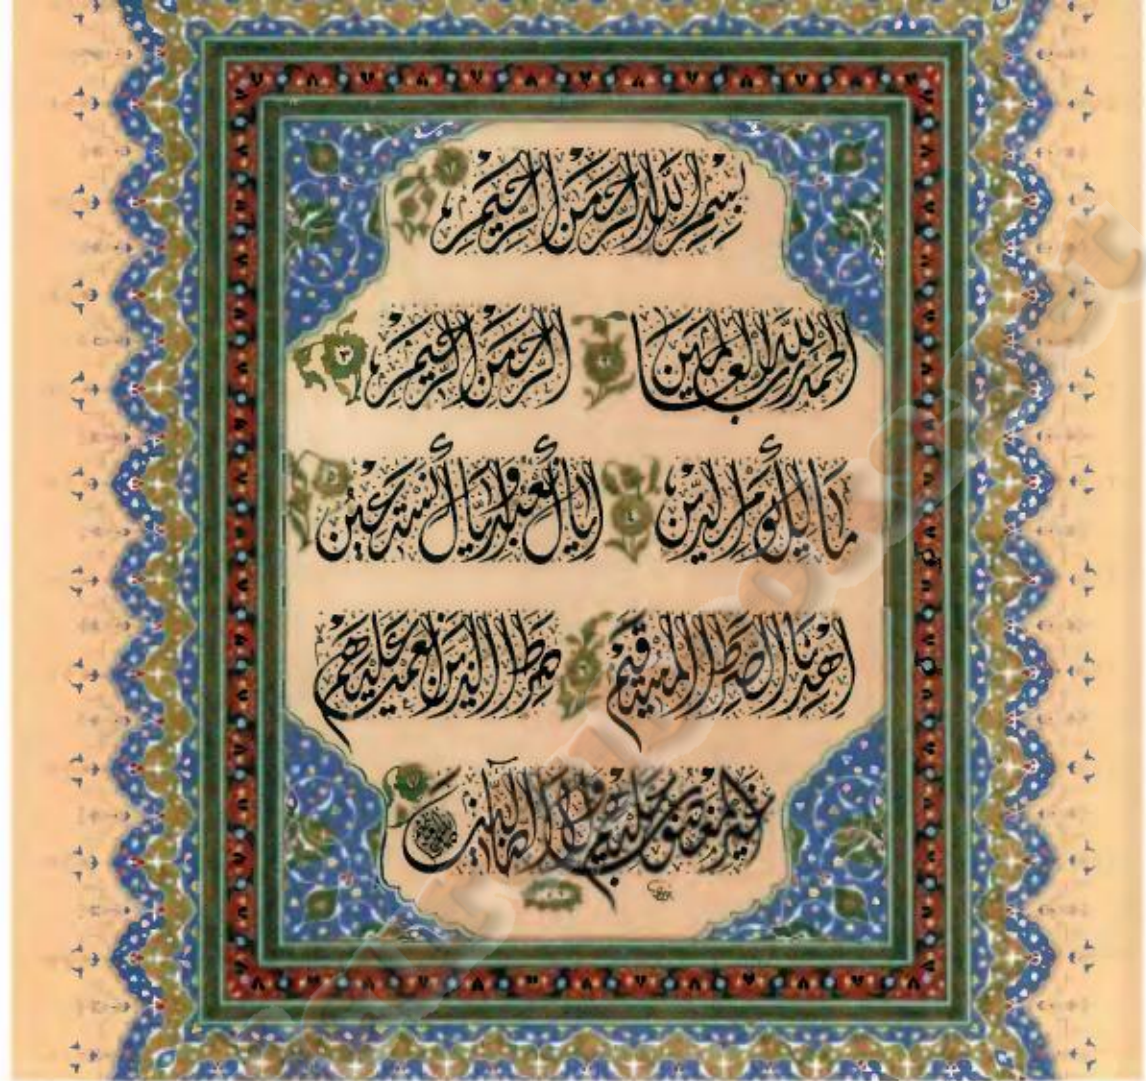 بسم الله الرحمن الرحيم
الحمد لله رب العالمين الرحمن الرحيم
مالك يوم الدين إياك نعبد وإياك نستعين
اهدنا الصراط المستقيم صراط الذين أنعمت عليهم
غير المغضوب عليهم ولا الضالين